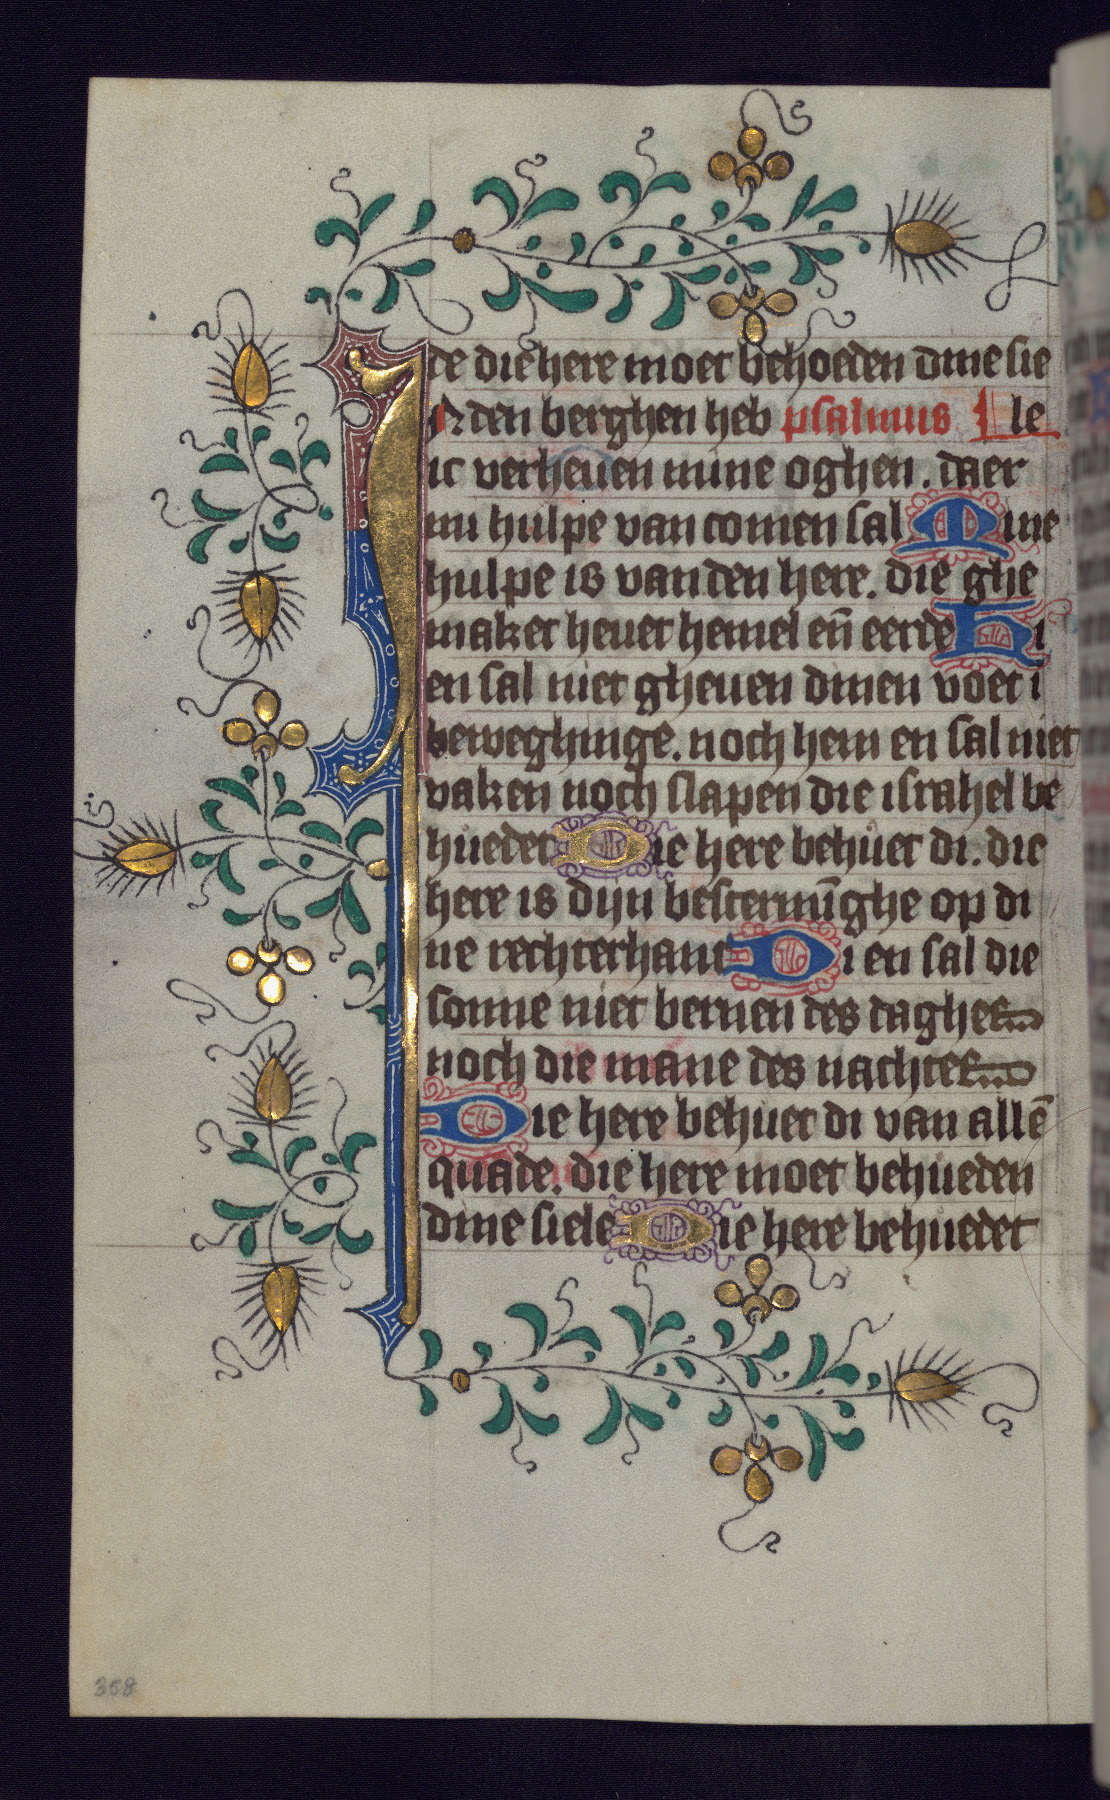 de die here moet behoeden dine sie
In den berghen heb psalmus le
ic verheuen mine oghen. daer
mi hulpe van comen sal Mine
hulpe is vanden here. die ghe
maket heuet hemel eñ eerde Hi
en sal niet gheuen dinen voet i
beweghinge. noch hem en sal niet
vaken noch slapen die israhel be
huedet Die here behuet di. die
here is dijn bescermūghe op di
ne rechterhant Di en sal die
sonne niet bernen des daghes
noch die mane des nachtes
Die here behuet di van allē
quade. die here moet behueden
dine siele Die here behuedet
358